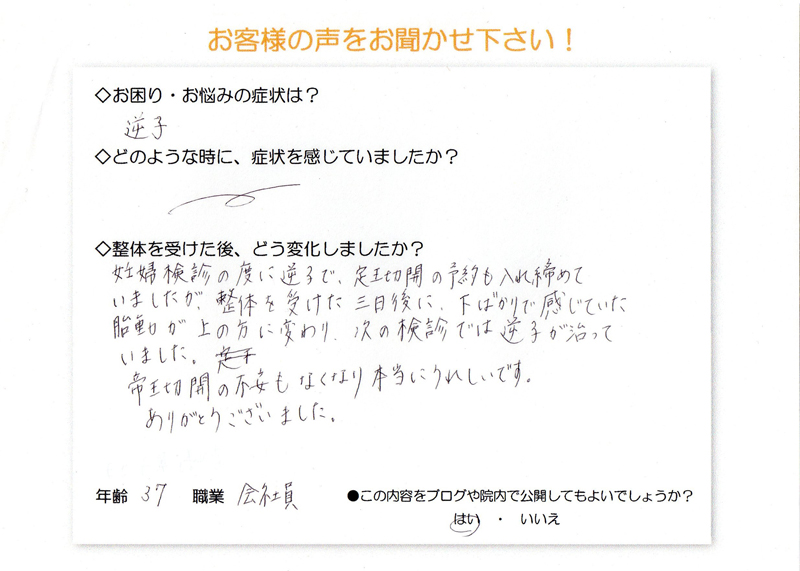 お客様の声をお聞かせ下さい！
◇お困り・お悩みの症状は？
逆子
◇どのような時に、症状を感じていましたか？
◇整体を受けた後、どう変化しましたか？
妊婦検診の度に逆子で、定王切開の予約も入れ締めて
いましたが、整体を受けた三日後に、下ばかりで感じていた
胎動が上の方に変わり、次の検診では逆子が治って
いました。
帝王切開の不安もなくなり本当にうれしいです。
ありがとうございました。
年齢 37 職業 会社員 ●この内容をブログや院内で公開してもよいでしょうか？
はい ・ いいえ